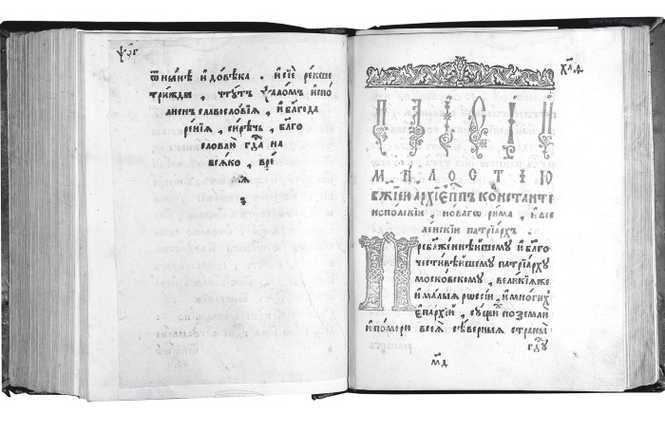 ѿны́нѣ и҆ до́вѣка . и҆ сїѐ ре́кше
три́жды , чту́тъ ѱало́мъ и҆спо́
лненъ славосло́вїѧ , и҆ бл҃года
ре́нїѧ , си́рѣчь , бл҃го
словлю̀ гдⷭ҇а на
всѧ́ко , вре́
м҃л҃о́стїю
бж҃їею а҆рхїе҆пⷭ҇пъ ко́нстанти
нопо́лскїи , но́вагѡ ри́ма , и҆ все
ле́нскїи патрїа́рхъ .
Пребл҃же́ннѣишему и҆ бл҃го
чести́вѣишему патрїа́рху
моско́вскому , вели́кїѧ же
и҆ ма́лыѧ рѡсе́їи , и҆ мно́гихъ
е҆па́рхїи , су́щи по земли
и҆ по́мори всеѧ̀ сѣ́верныѧ страны̀
гдⷭ҇у